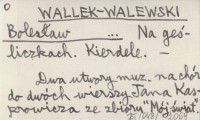 WALLEK-WALEWSKI
Bolesław ... Na gęś-
liczkach. Kierdele. —
Dwa utwory muz. na chór
do dwóch wierszy Jana Kas-
prowicza ze zbioru "Mój świat".